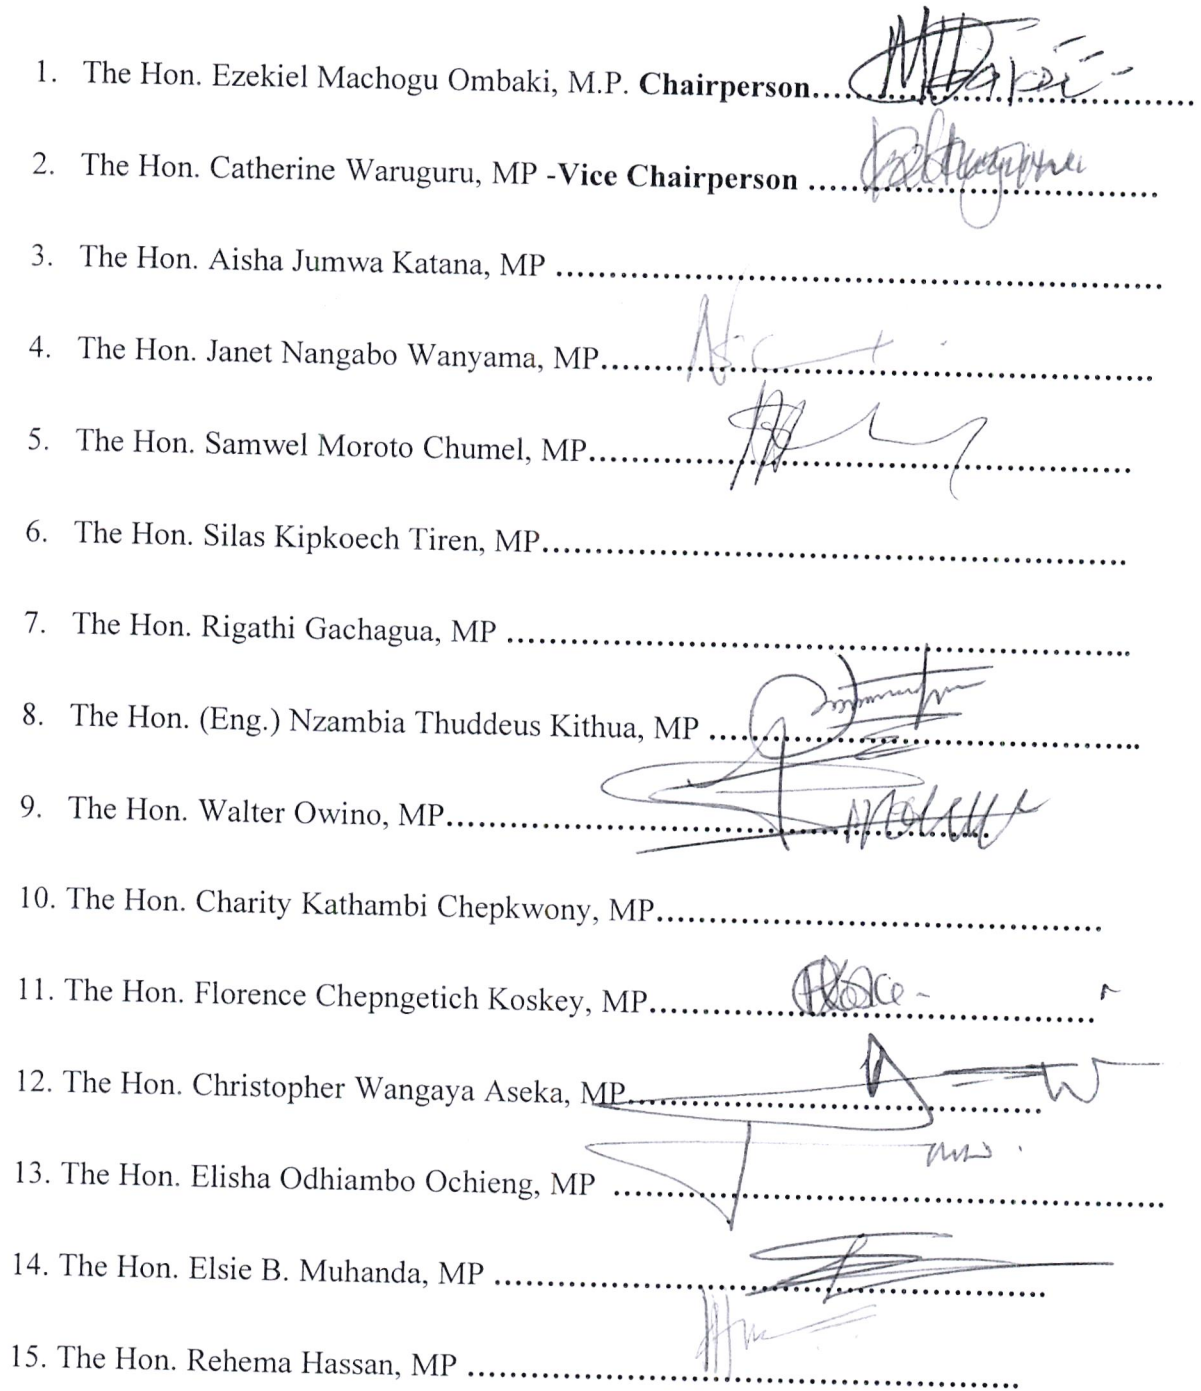 1. The Hon. Ezekiel Machogu Ombaki, M.P. Chairperson....................................
2. The Hon. Catherine Waruguru, MP -Vice Chairperson ....................................
3. The Hon. Aisha Jumwa Katana, MP ....................................
4. The Hon. Janet Nangabo Wanyama, MP....................................
5. The Hon. Samwel Moroto Chumel, MP....................................
6. The Hon. Silas Kipkoech Tiren, MP....................................
7. The Hon. Rigathi Gachagua, MP ....................................
8. The Hon. (Eng.) Nzambia Thuddeus Kithua, MP ....................................
9. The Hon. Walter Owino, MP....................................
10. The Hon. Charity Kathambi Chepkwony, MP....................................
11. The Hon. Florence Chepngetich Koskey, MP....................................
12. The Hon. Christopher Wangaya Aseka, MP....................................
13. The Hon. Elisha Odhiambo Ochieng, MP ....................................
14. The Hon. Elsie B. Muhanda, MP ....................................
15. The Hon. Rehema Hassan, MP ....................................